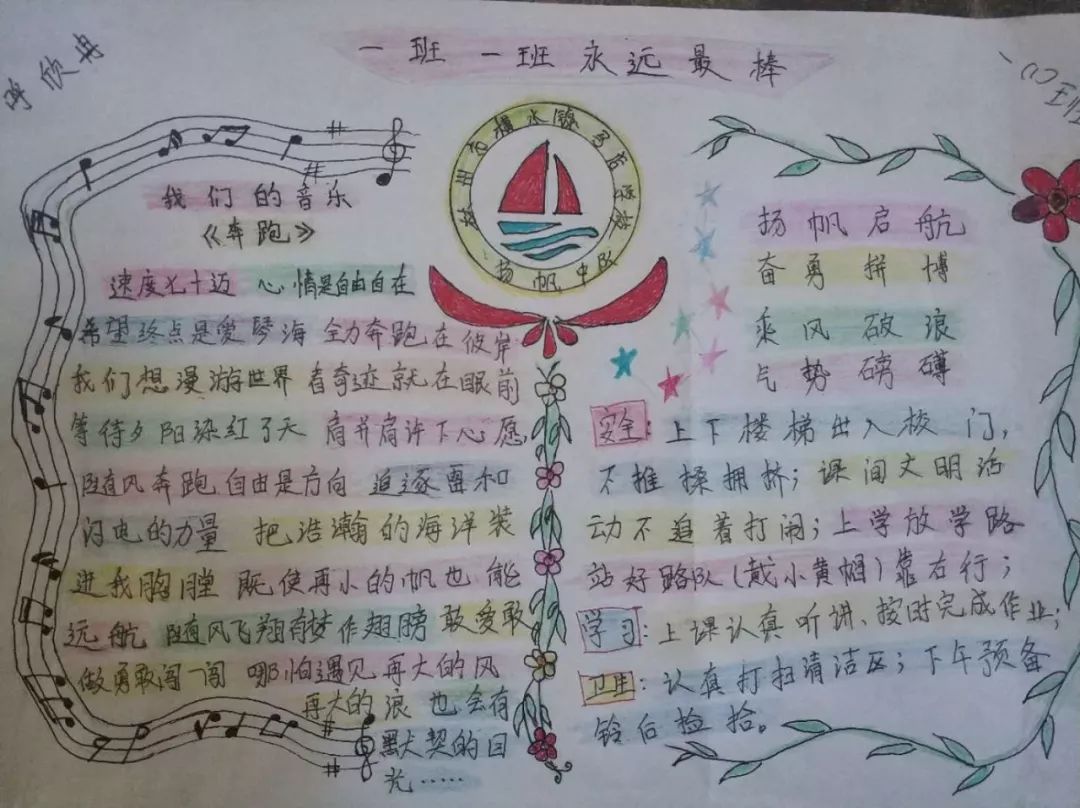 一班 一班永远最棒
欣冉
一(1)班
扬帆中队
我们的音乐
《奔跑》
速度七十迈 心情是自由自在
希望终点是爱琴海 全力奔跑在彼岸
我们想漫游世界 看奇迹就在眼前
等待夕阳染红了天 肩并肩许下心愿,
随风奔跑自由是方向 追逐雷和
闪电的力量 把浩瀚的海洋装
进我胸膛 既使再小的帆也能
远航 随风飞翔有梦作翅膀 敢爱敢
做勇敢闯一闯 哪怕遇见再大的风
再大的浪 也会有
默契的目
光……
扬帆启航
奋勇拼搏
乘风破浪
气势磅礴
安全:上下楼梯出入校门,
不推搡拥挤;课间文明活
动不追着打闹;上学放学路
站好路队(戴小黄帽)靠右行;
学习:上课认真听讲、按时完成作业;
卫生:认真打扫清洁区;下午预备
铃后捡拾。